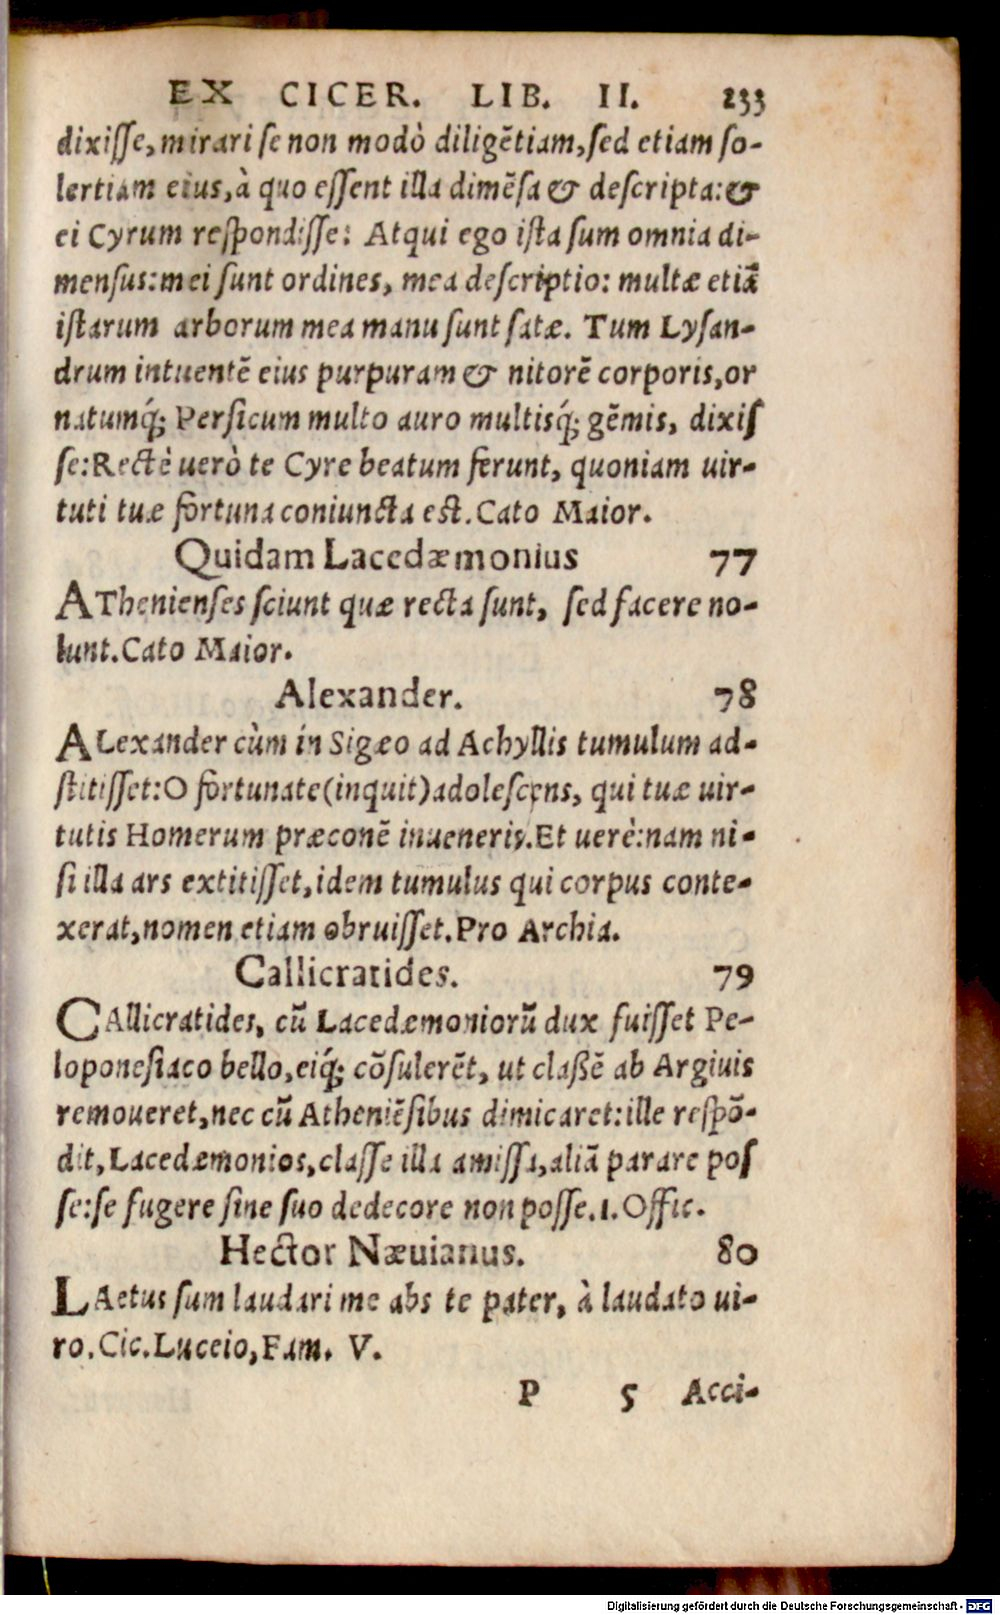 EX CICER. LIB. II. 233
dixisse, mirari se non modò diligẽtiam, sed etiam so-
lertiam eius, à quo essent illa dimẽsa & descripta: &
ei Cyrum respondisse: Atqui ego ista sum omnia di-
mensus: mei sunt ordines, mea descriptio: multæ etiã
istarum arborum mea manu sunt satæ. Tum Lysan-
drum intuentẽ eius purpuram & nitorẽ corporis, or
natumq́; Persicum multo auro multisq́; gẽmis, dixis
se: Rectè uerò te Cyre beatum ferunt, quoniam uir-
tuti tuæ fortuna coniuncta est. Cato Maior.
Quidam Lacedæmonius 77
AThenienses sciunt quæ recta sunt, sed facere no-
lunt. Cato Maior.
Alexander. 78
ALexander cùm in Sigæo ad Achyllis tumulum ad-
stitisset: O fortunate (inquit) adolescens, qui tuæ uir-
tutis Homerum præconẽ inueneris. Et uerè: nam ni-
si illa ars extitisset, idem tumulus qui corpus conte-
xerat, nomen etiam obruisset. Pro Archia.
Callicratides. 79
CAllicratides, cũ Lacedæmoniorũ dux fuisset Pe-
loponesiaco bello, eiq́; cõsulerẽt, ut claßẽ ab Argiuis
remoueret, nec cũ Atheniẽsibus dimicaret: ille respõ-
dit, Lacedæmonios, classe illa amissa, aliã parare pos
se: se fugere sine suo dedecore non posse. 1. Offic.
Hector Næuianus. 80
LAetus sum laudari me abs te pater, à laudato ui-
ro. Cic. Luceio, Fam. V.
P 5 Acci-
Digitalisierung gefördert durch die Deutsche Forschungsgemeinschaft - DFG